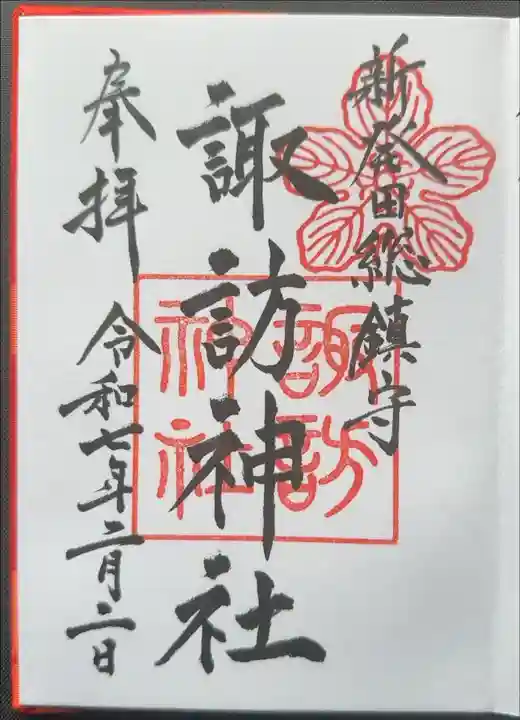 新発田総鎮守
諏訪神社
諏訪
神社
奉拝 令和七年二月二日